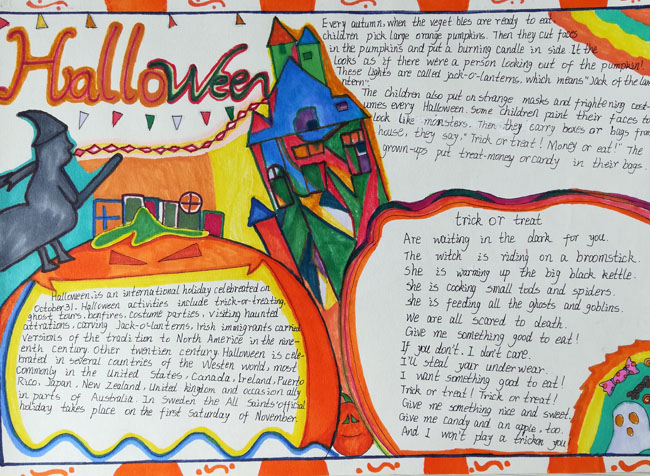 Halloween
Every autumn, when the veget bles are ready to eat
children pick large orange pumpkins. Then they cut faces
in the pumpkins and put a burning candle in side It the
looks as if there were a person looking out of the pumpkin!
These lights are called jack-o'-lanterns, which means "Jack of the lan
ntern".
The children also put on strange masks and frightening cost-
umes every Halloween. Some children paint their faces to
look like monsters. Then they carry boxes or bags from
house, they say," Trick or treat! Money or eat!" The
grown-ups put treat-money or candy in their bags.
Halloween. is an international holiday celebrated on
October 31. Halloween activities include trick-or-treating,
ghost tours, bonfires, costume parties, visiting haunted
attrations, carving Jack-o'-lanterns, Irish immigrants carried
versions of the tradition to North America in the nine-
enth century. Other twentien century. Halloween is cele-
brated in several countries of the Westen world, most
commonly in the United States, Canada, Ireland, Puerto
Rico, Japan, New Zealand, United kingdom and occasion ally
in parts of Australia. In Sweden the All Saints'official
holiday takes place on the first Saturday of November.
trick or treat
Are waiting in the dark for you.
The witch is riding on a broomstick.
She is warming up the big black kettle.
She is cooking small tods and spiders.
she is feeding all the ghosts and goblins.
We are all scared to death.
Give me something good to eat!
If you don't. I don't care.
I'll steal your underwear.
I want something good to eat!
Trick or treat! Trick or treat!
Give me something nice and sweet.
Give me candy and an apple, too.
And I won't play a trickon you